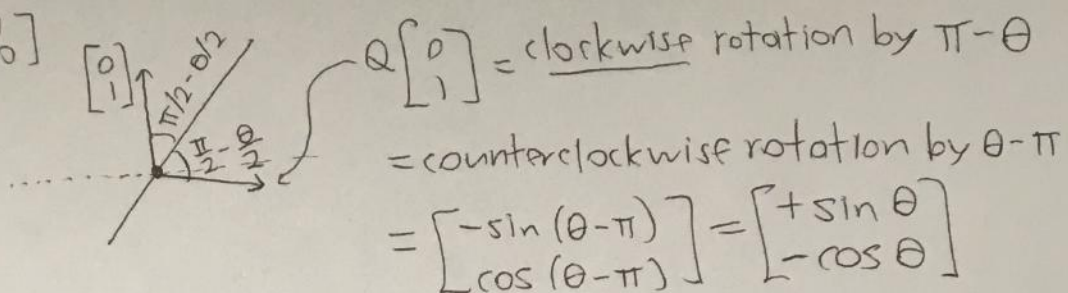 b]
[0 1]
π/2-θ/2
π/2-θ/2
Q[0 1] = clockwise rotation by π-θ
= counterclockwise rotation by θ-π
= [-sin (θ-π) cos (θ-π)] = [+sin θ -cos θ]